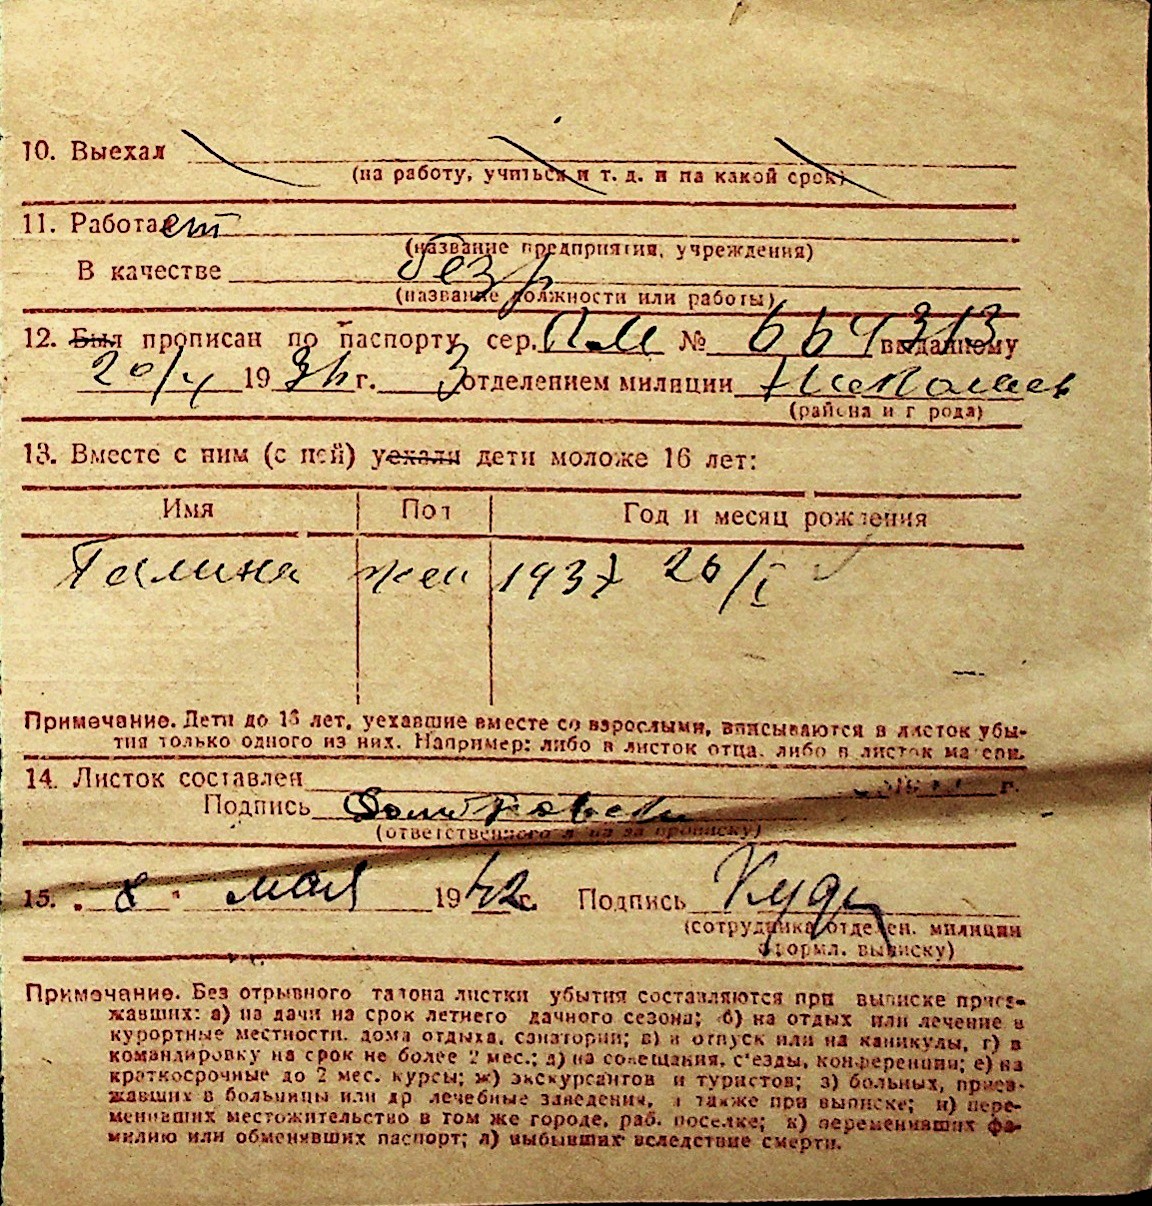 10. Выехал
(на работу, учиться и т. д. и на какой срок)
11. Работает
(название предприятия, учреждения)
В качестве без р
(название должности или работы)
12. Был прописан по паспорту сер. № выданному
20/V 19 г. 3 отделением милиции Николаев
(района и города)
13. Вместе с ним (с ней) уехали дети моложе 16 лет:
Имя Пол Год и месяц рождения
Галина жен 1937 26/I
Примечание. Дети до 16 лет, уехавшие вместе со взрослыми, вписываются в листок убы-
тия только одного из них. Например: либо в листок отца, либо в листок матери.
14. Листок составлен г.
Подпись
(ответственного л. за прописку)
15. „8" мая 1942 г. Подпись
(сотрудника отделен. милиции
оформл. выписку)
Примечание. Без отрывного талона листки убытия составляются при выписке приез-
жавших: а) на дачи на срок летнего дачного сезона; б) на отдых или лечение в
курортные местности, дома отдыха, санатории; в) в отпуск или на каникулы, г) в
командировку на срок не более 2 мес.; д) на совещания, с'езды, конференции; е) на
краткосрочные до 2 мес. курсы; ж) экскурсантов и туристов; з) больных, приез-
жавших в больницы или др лечебные заведения, а также при выписке; и) пере-
менивших местожительство в том же городе, раб. поселке; к) переменивших фа-
милию или обменявших паспорт; л) выбывших вследствие смерти.